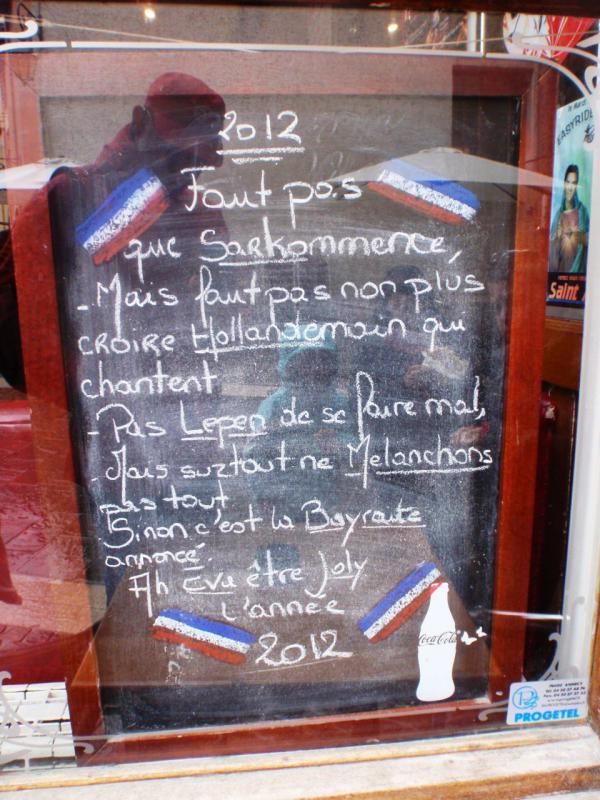 2012
Faut pas
que Sarkommence,
- Mais faut pas non plus
CROIRE Hollandemain qui
chantent
- Pas Lepen de se faire mal,
- Mais surtout ne Melanchons
pas tout
Sinon c'est la Bayroute
annoncé.
Ah Eva être Joly
L'année
2012
Coca-Cola
EASYRIDER
Saint
PROGETEL